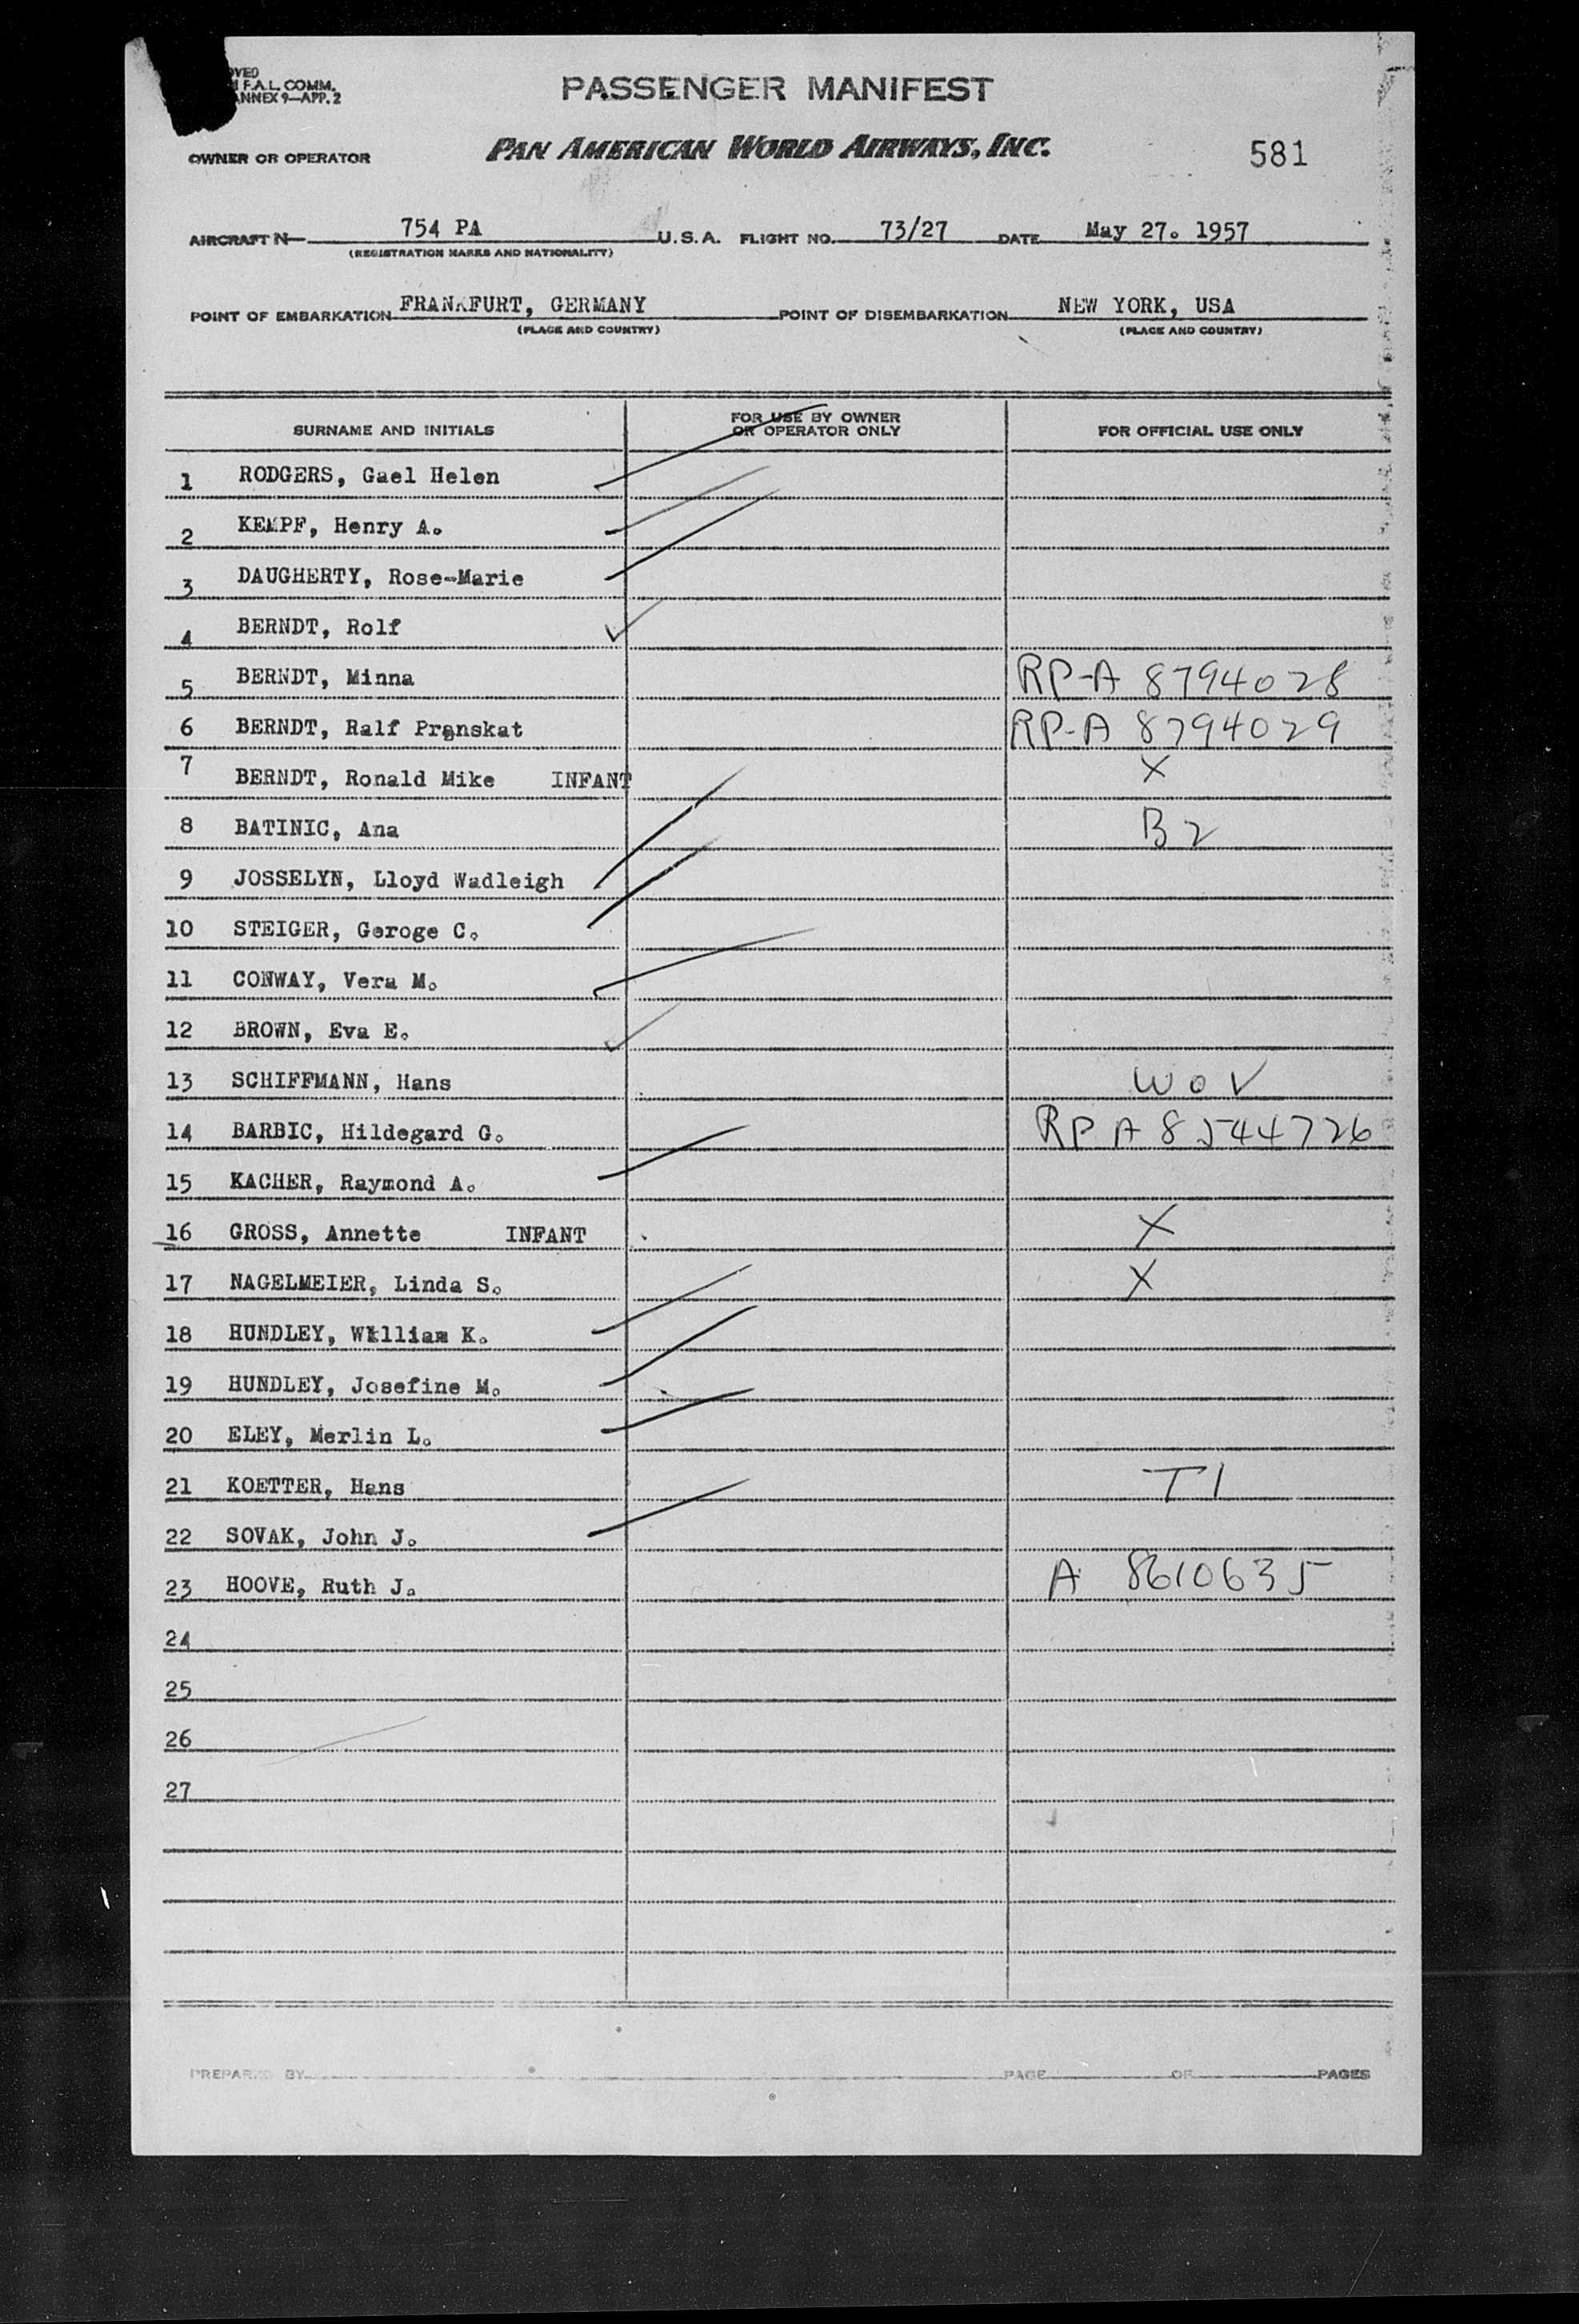 OVED
F.A.L. COMM.
ANNEX 9—APP. 2
PASSENGER MANIFEST
OWNER OR OPERATOR PAN AMERICAN WORLD AIRWAYS, INC. 581
AIRCRAFT N— 754 PA U.S.A. FLIGHT NO. 73/27 DATE May 27. 1957
(REGISTRATION MARKS AND NATIONALITY)
POINT OF EMBARKATION FRANKFURT, GERMANY POINT OF DISEMBARKATION NEW YORK, USA
(PLACE AND COUNTRY) (PLACE AND COUNTRY)
SURNAME AND INITIALS FOR USE BY OWNER OR OPERATOR ONLY FOR OFFICIAL USE ONLY
1 RODGERS, Gael Helen
2 KEMPF, Henry A.
3 DAUGHERTY, Rose-Marie
4 BERNDT, Rolf
5 BERNDT, Minna RP-A 8794028
6 BERNDT, Ralf Pranskat RP-A 8794029
7 BERNDT, Ronald Mike INFANT X
8 BATINIC, Ana B2
9 JOSSELYN, Lloyd Wadleigh
10 STEIGER, Geroge C.
11 CONWAY, Vera M.
12 BROWN, Eva E.
13 SCHIFFMANN, Hans WOV
14 BARBIC, Hildegard G. RP A 8544726
15 KACHER, Raymond A.
16 GROSS, Annette INFANT X
17 NAGELMEIER, Linda S. X
18 HUNDLEY, William K.
19 HUNDLEY, Josefine M.
20 ELEY, Merlin L.
21 KOETTER, Hans T1
22 SOVAK, John J.
23 HOOVE, Ruth J. A 8610635
24
25
26
27
PREPARED BY PAGE OF PAGES